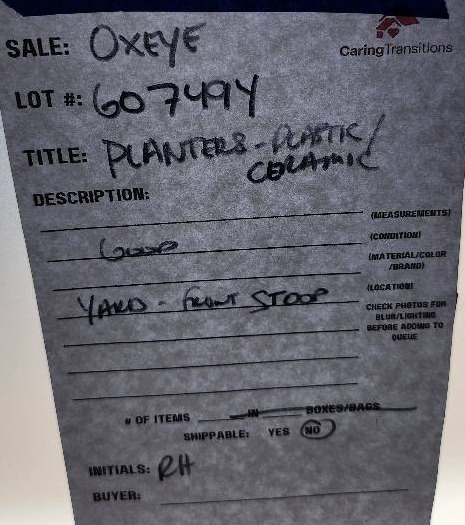 SALE: OXEYE
CaringTransitions
LOT #: 607494
TITLE: PLANTERS - PLASTIC/
CERAMIC
DESCRIPTION:
(MEASUREMENTS)
GOOD (CONDITION)
(MATERIAL/COLOR
/BRAND)
YARD - FRONT STOOP (LOCATION)
CHECK PHOTOS FOR
BLUR/LIGHTING
BEFORE ADDING TO
QUEUE
# OF ITEMS IN BOXES/BAGS
SHIPPABLE: YES NO
INITIALS: RH
BUYER: